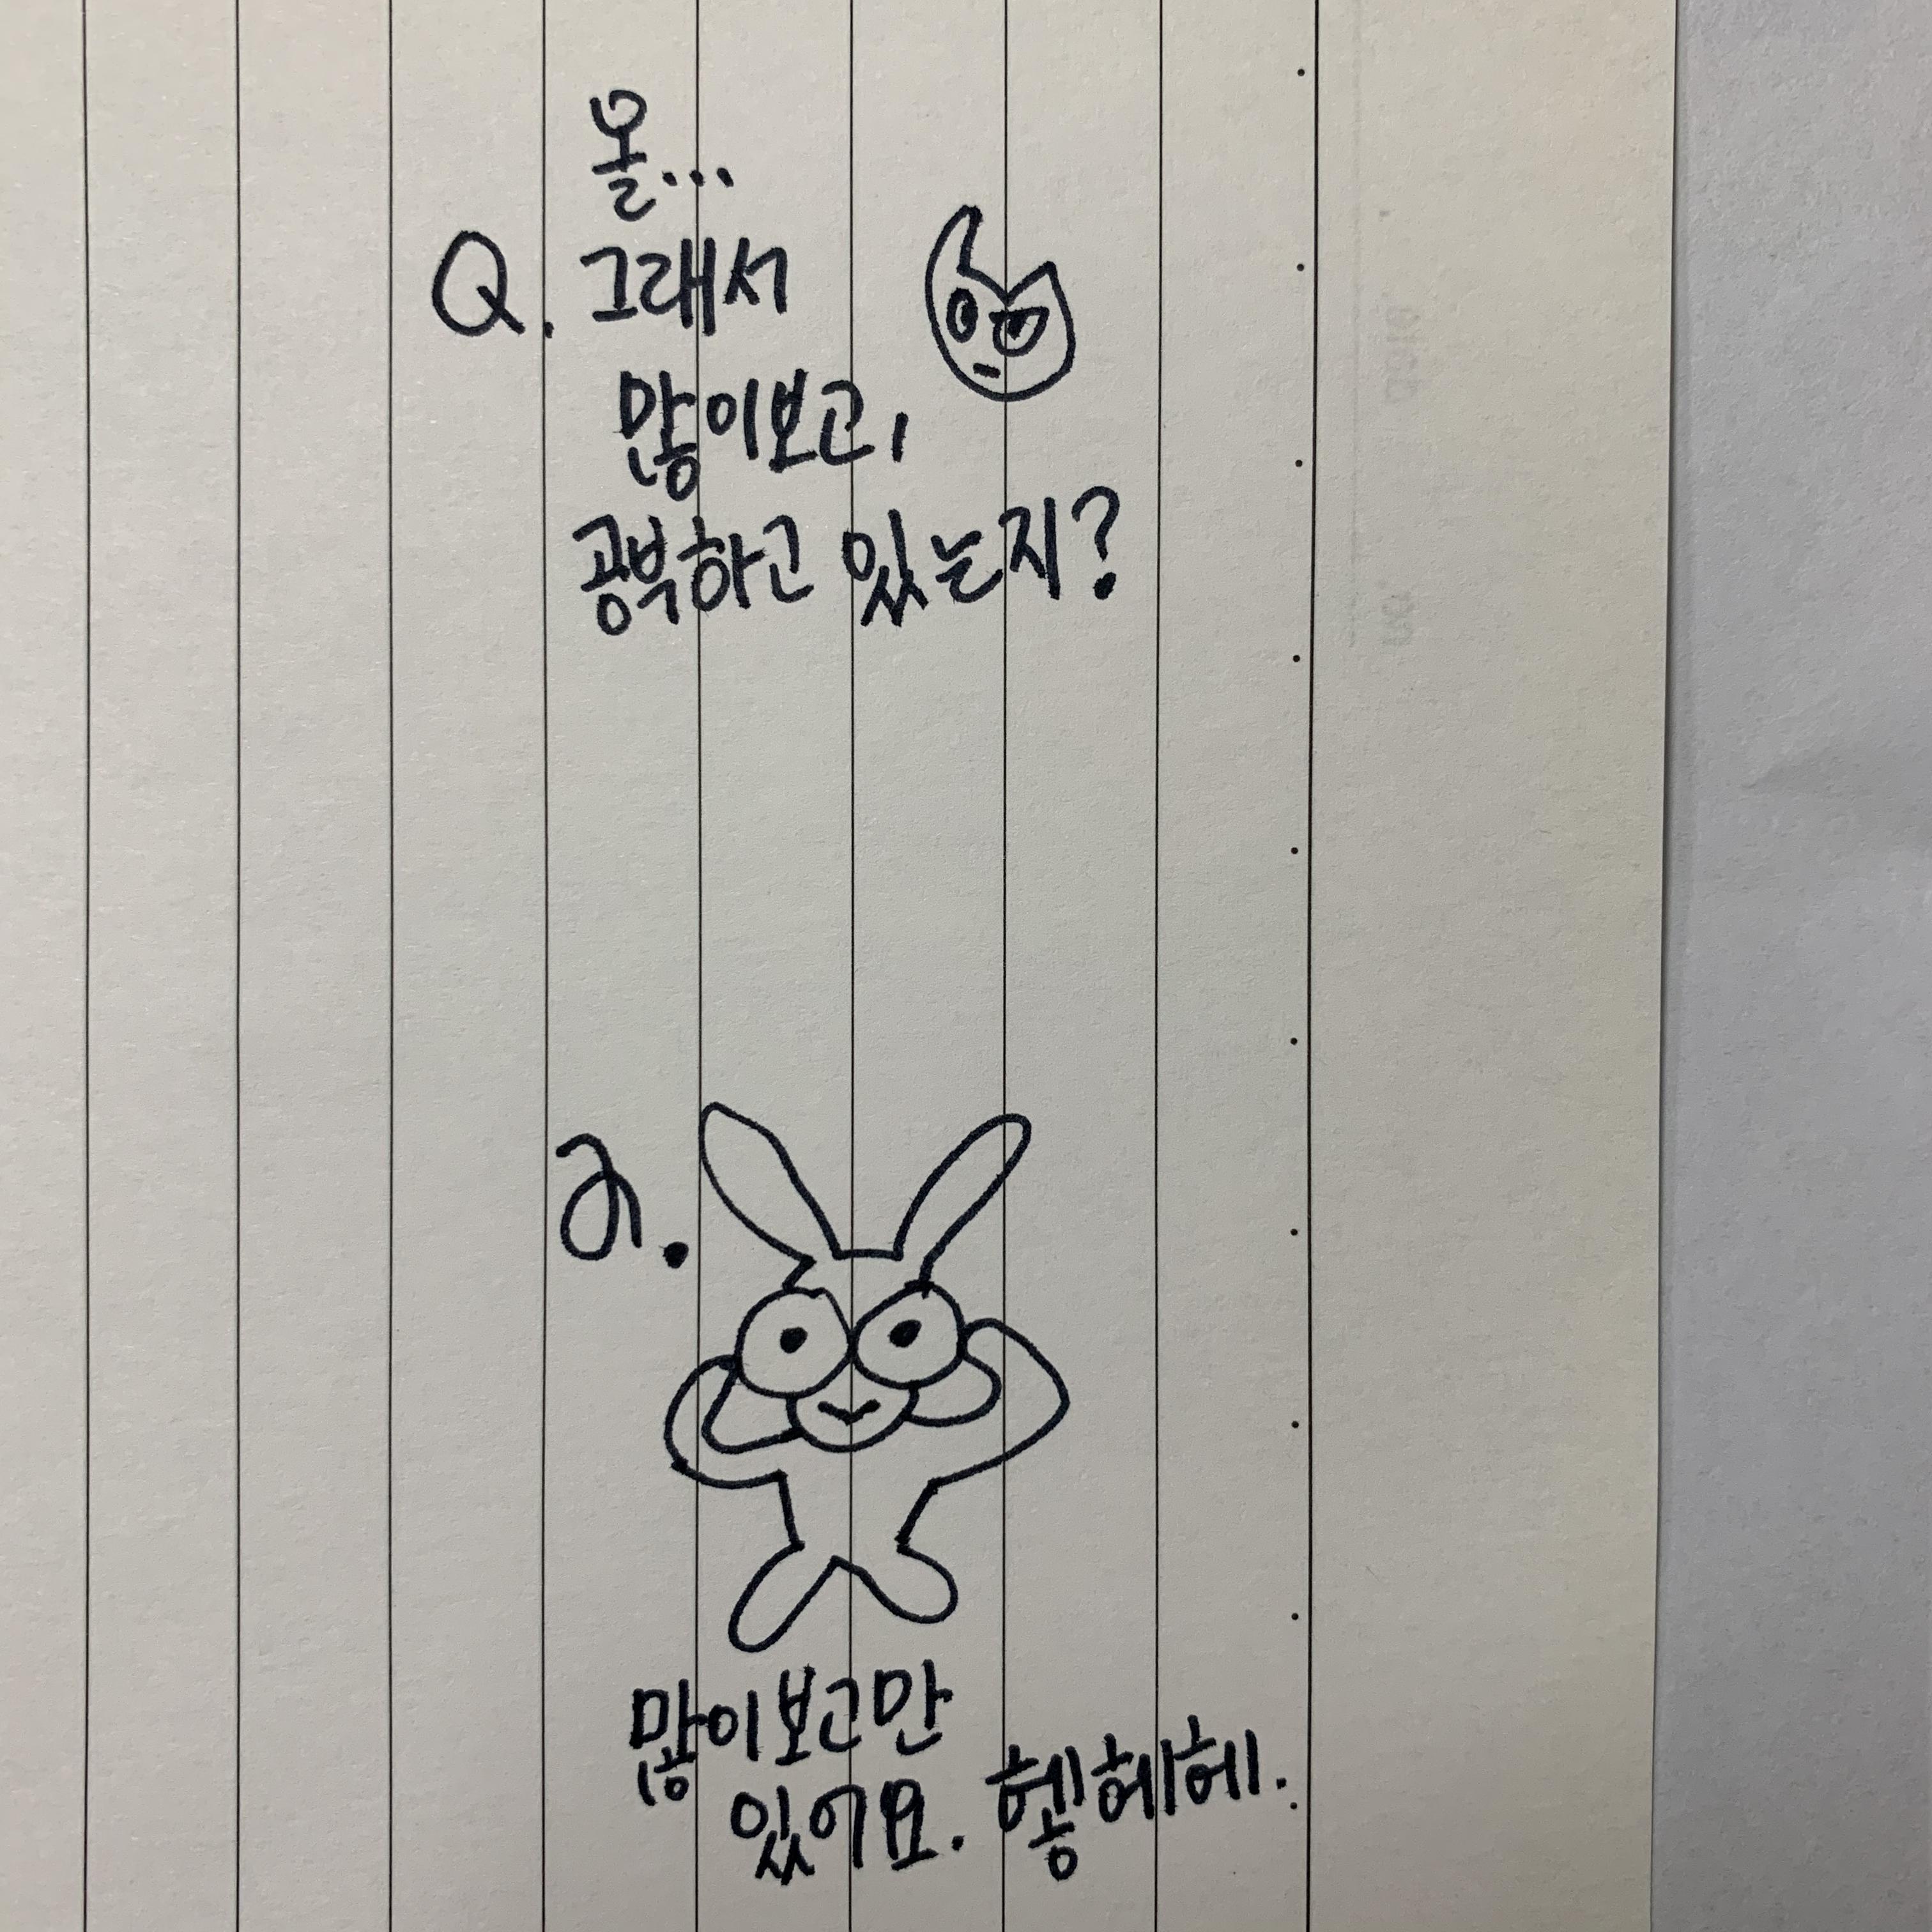 올...
Q. 그래서
많이보고,
공부하고 있는지?
a.
많이보고만
있어요. 헿헤헤.